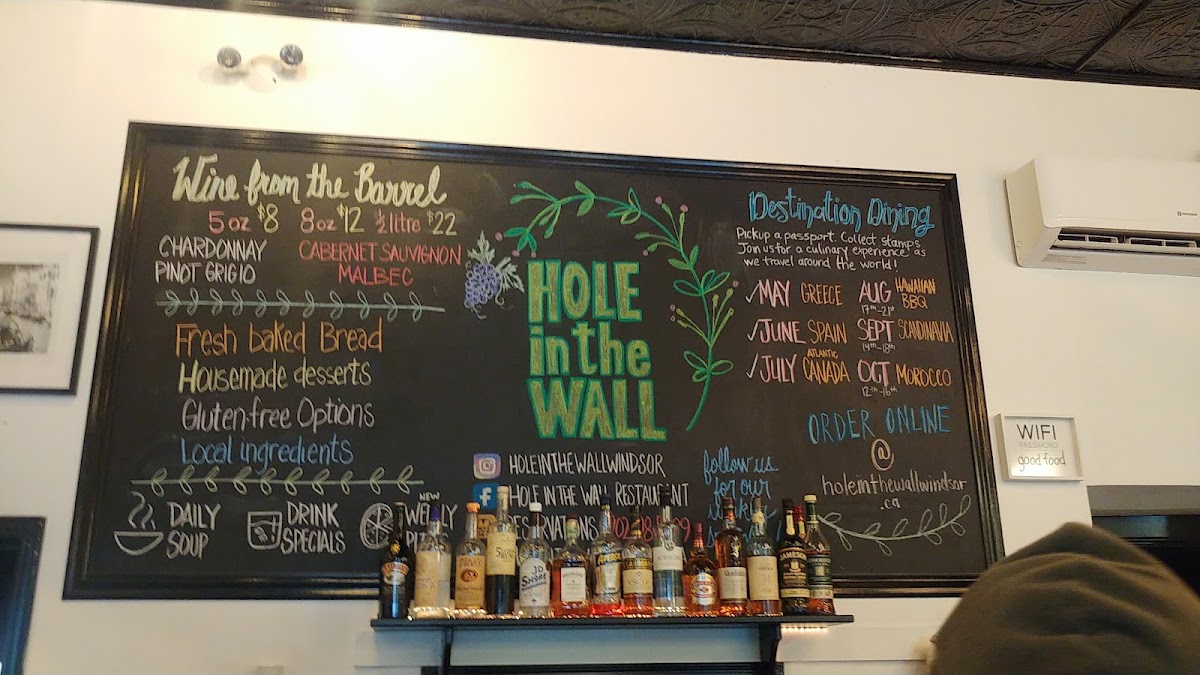 Wine from the Barrel
5 oz $8 8 oz $12 ½ litre $22
CHARDONNAY
PINOT GRIGIO
CABERNET SAUVIGNON
MALBEC
Fresh baked Bread
Housemade desserts
Gluten-free Options
Local ingredients
DAILY
SOUP
DRINK
SPECIALS
NEW
HOLE
in the
WALL
HOLEINTHEWALLWINDSOR
HOLE IN THE WALL RESTAURANT
follow us
for our
Destination Dining
Pick up a passport. Collect stamps
Join us for a culinary experience as
we travel around the world!
✓MAY GREECE
✓JUNE SPAIN
✓JULY ATLANTIC CANADA
AUG HAWAIIAN BBQ
17th-21st
SEPT SCANDINAVIA
14th-18th
OCT MOROCCO
12th-16th
ORDER ONLINE
@
holeinthewallwindsor
.ca
WIFI
PASSWORD
good food
JD
SHORE
JAMESON